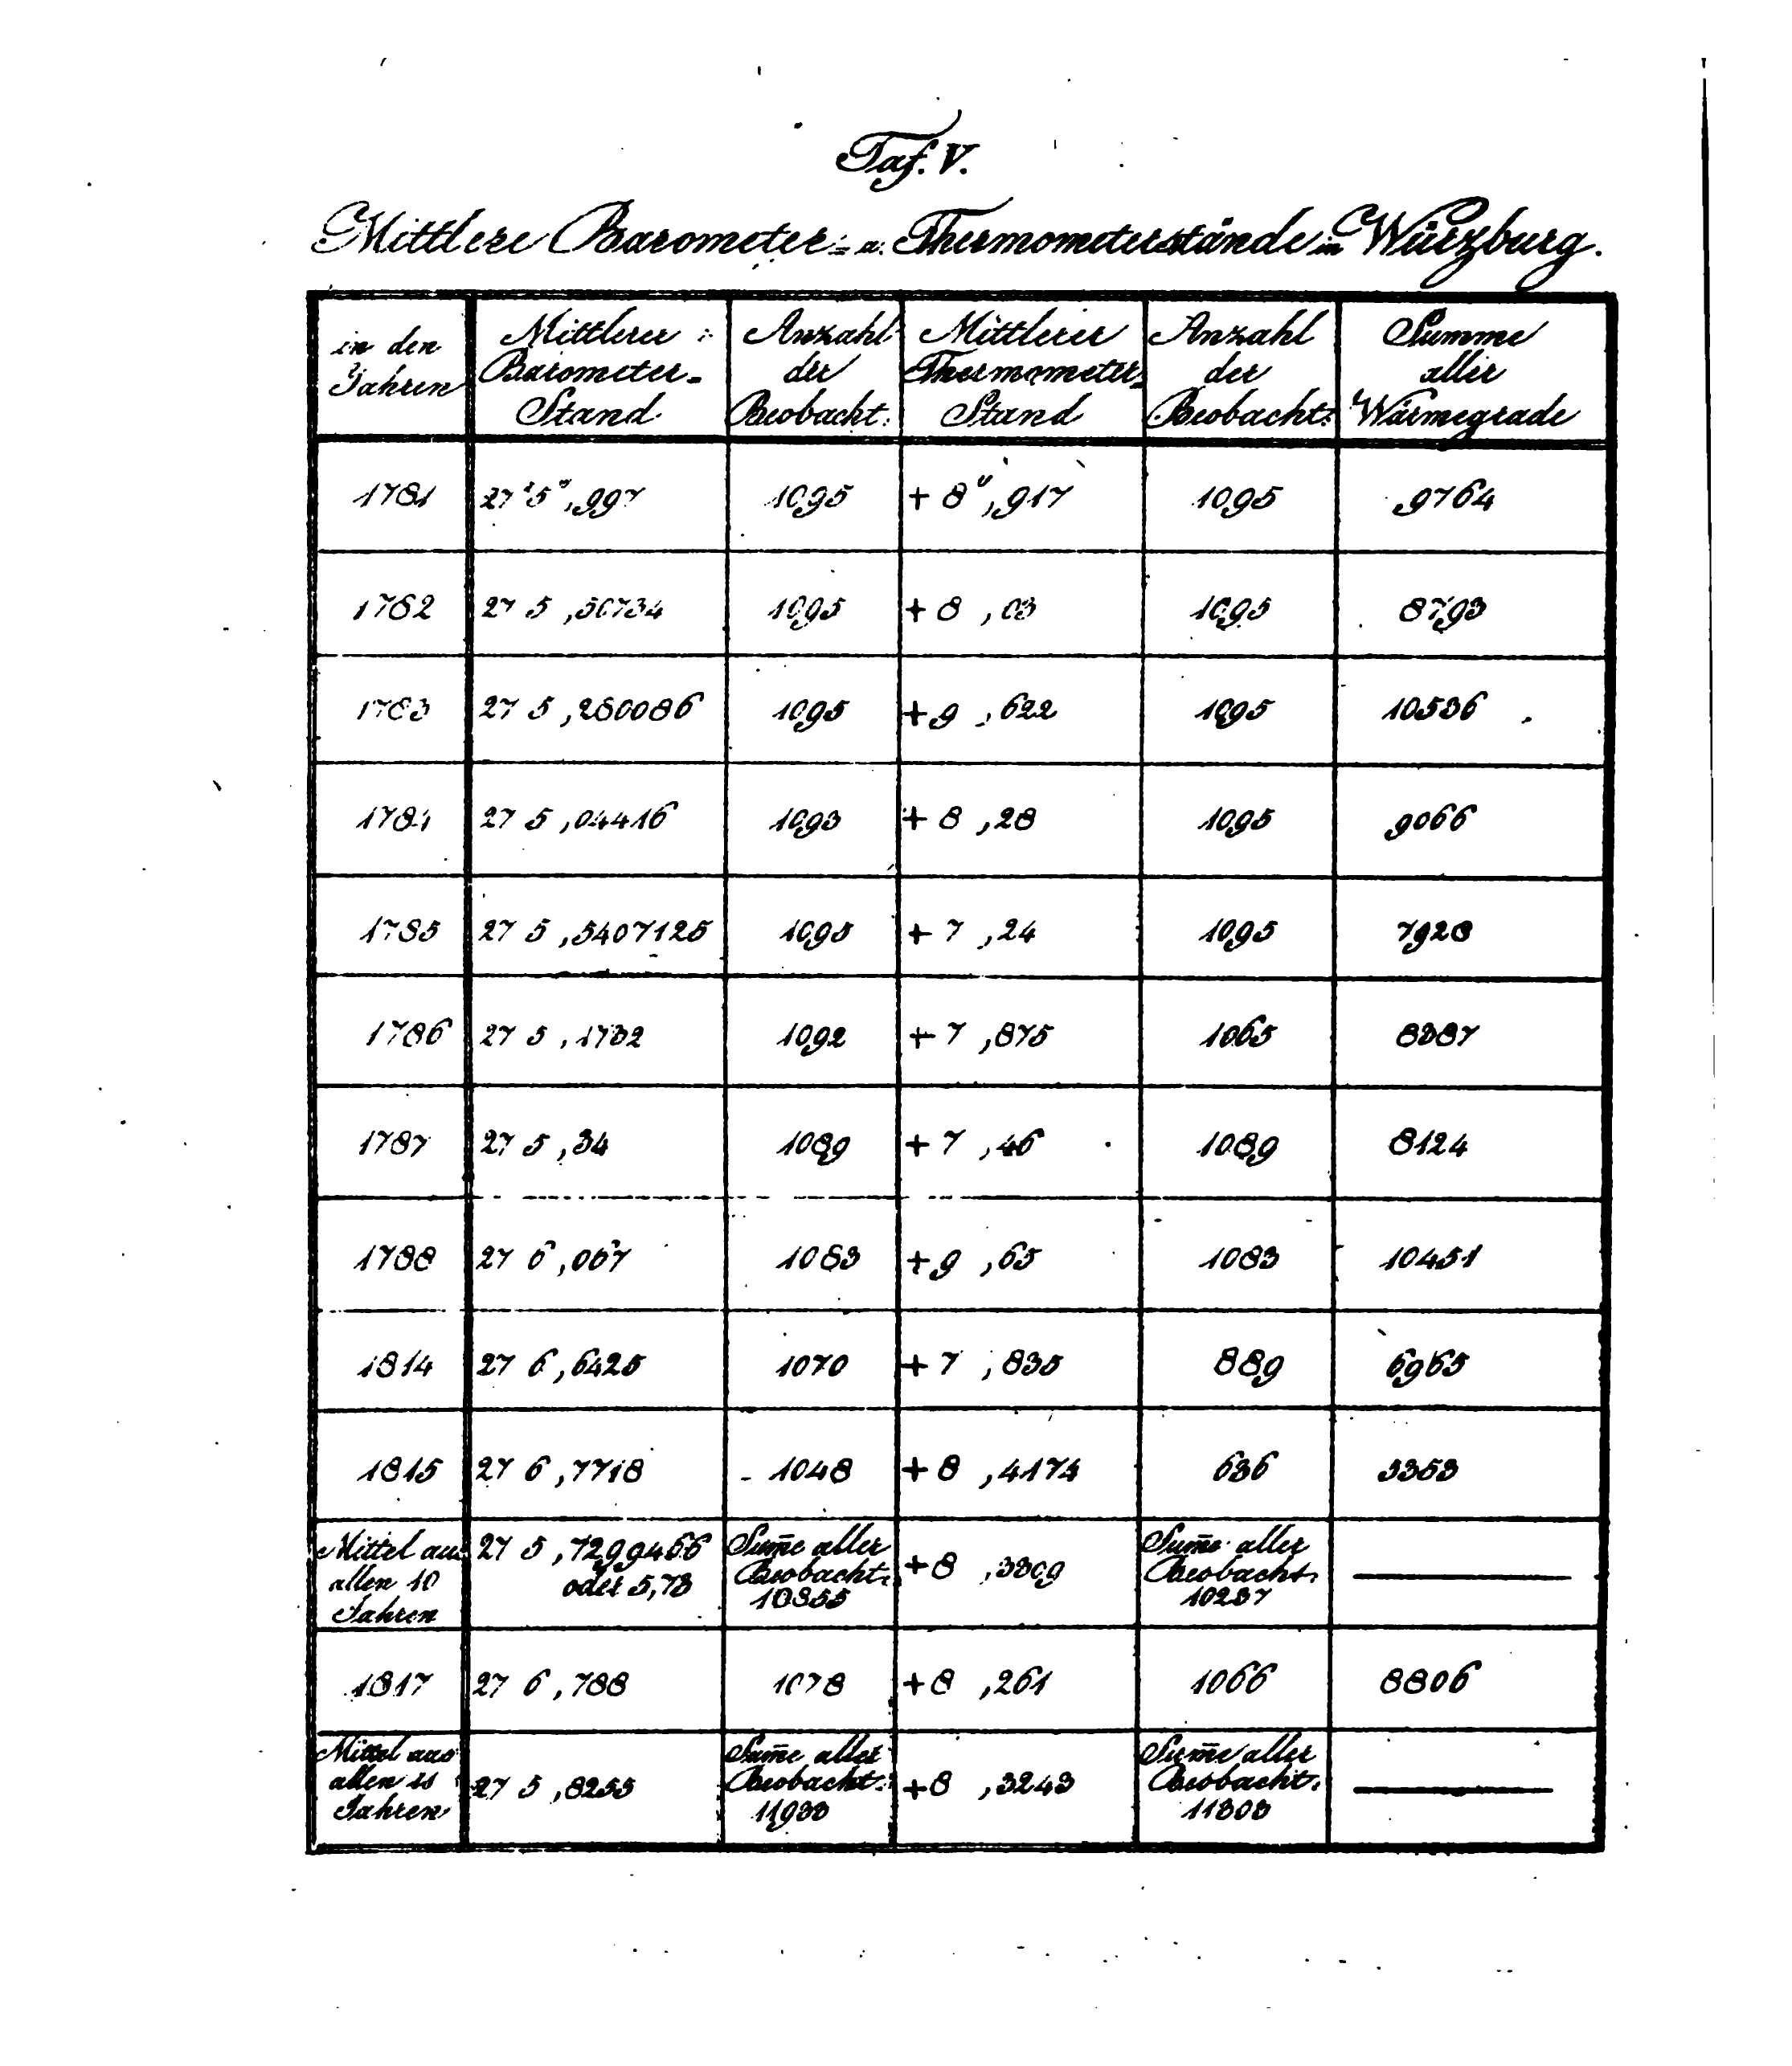 Taf. V.
Mittlere Barometer= u. Thermometerstände in Würzburg.
in den Jahren | Mittlerer Barometer= Stand | Anzahl der Beobacht. | Mittlerer Thermometer= Stand | Anzahl der Beobacht. | Summe aller Wärmegrade
1781 27' 5", 997 1095 + 8", 917 1095 9764
1782 27 5 ,50734 1095 + 8 , 03 1095 8793
1783 27 5 ,280086 1095 + 9 , 622 1095 10536
1784 27 5 ,04416 1093 + 8 ,28 1095 9066
1785 27 5 ,5407125 1095 + 7 ,24 1095 7928
1786 27 5 ,1732 1092 + 7 ,875 1065 8387
1787 27 5 ,34 1089 + 7 ,46 1089 8124
1788 27 6 ,067 1083 + 9 ,65 1083 10451
1814 27 6 ,6425 1070 + 7 ,835 889 6965
1815 27 6 ,7718 1048 + 8 ,4174 636 3353
Mittel aus 27 5 ,7299466 Sum̄e aller + 8 ,3309 Sum̄e aller
allen 10 oder 5,73 Beobacht. Beobacht.
Jahren 10855 10237
1817 27 6 ,788 1078 + 8 ,261 1066 8806
Mittel aus Sum̄e aller Sum̄e aller
allen 11 27 5 ,8255 Beobacht. + 8 ,3243 Beobacht.
Jahren 11933 11303